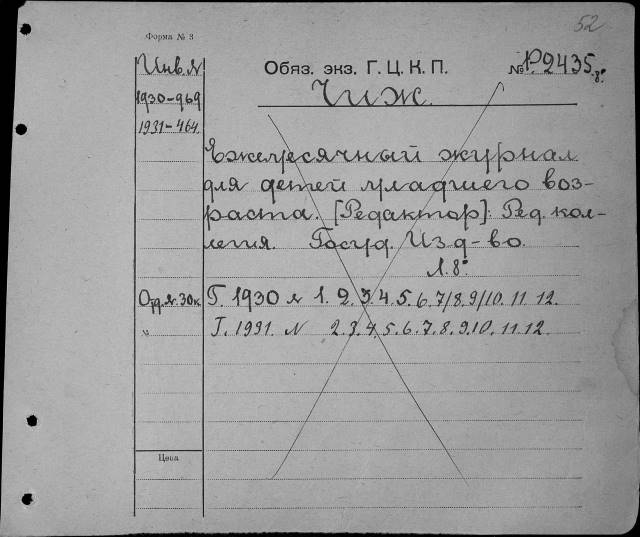 52
Форма № 3
Инв. №
Обяз. экз. Г. Ц. К. П.
№ Р2435 8°
1930-969
Чиж.
1931-464.
Ежемесячный журнал
для детей младшего воз-
раста. [Редактор]: Ред. кол-
легия. Госуд. Изд-во.
Л. 8°
Отд. № 30к. Г. 1930 № 1. 2. 3. 4. 5. 6. 7/8. 9/10. 11. 12.
" Г. 1931. N 2. 3. 4. 5. 6. 7. 8. 9. 10. 11. 12.
Цена